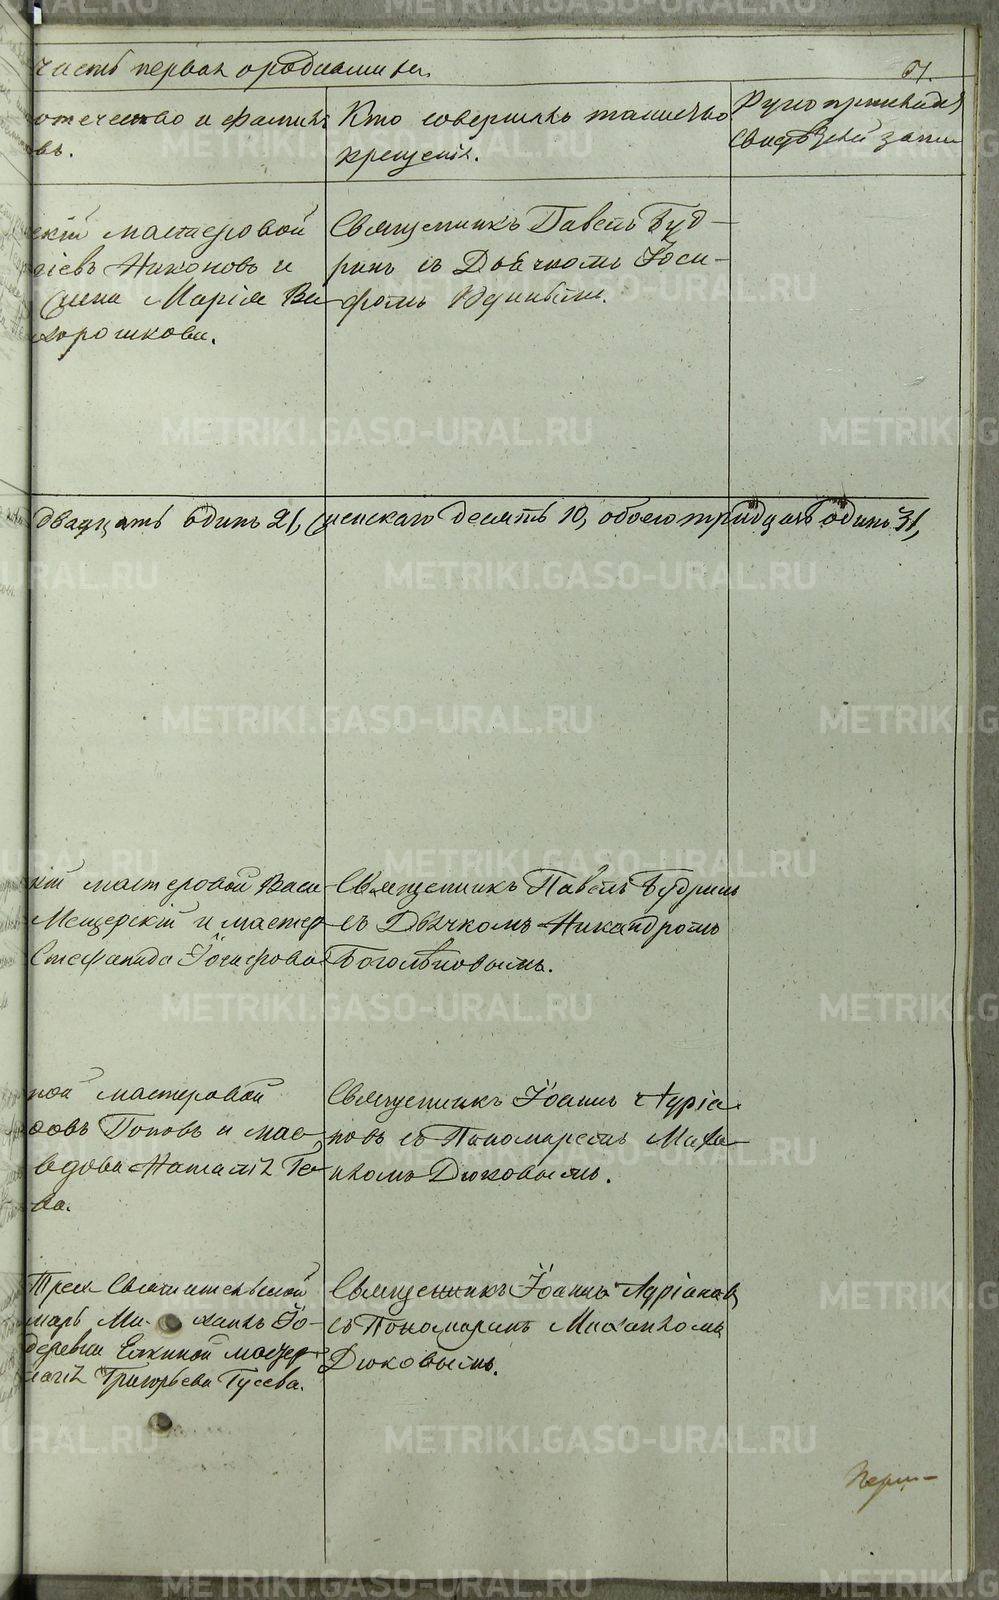 часть первая о родившихся.
51.
отечество и фамилія
въ.
Кто совершилъ таинство
крещенія.
Рукоприкладст
свидѣтелей запи
скій мастеровой
Никоновъ и
жена Марія Ва
хорошкова.
Священникъ Павелъ Буд-
ринъ съ Дьячкомъ Іоси-
фомъ
двадцать одинъ 21, женскаго десять 10, обоего тридцать одинъ 31,
кій мастеровой Васи
Мещерскій и мастер
Стефанида Іосифова
Священникъ Павелъ Будринъ
съ Дьячкомъ Никандромъ
Боголѣповымъ.
ной мастеровой
Поповъ и мас
вдова Наталія Ге
ва.
Священникъ Іоаннъ Адріа
новъ съ Пономаремъ Миха
иломъ Дюковымъ.
Трех Святительской
марь Михаилъ Іо-
деревни Елкиной мастер
Григорьева Гусева.
Священникъ Іоаннъ Адріановъ
съ Пономаремъ Михаиломъ
Дюковымъ.
METRIKI.GASO-URAL.RU